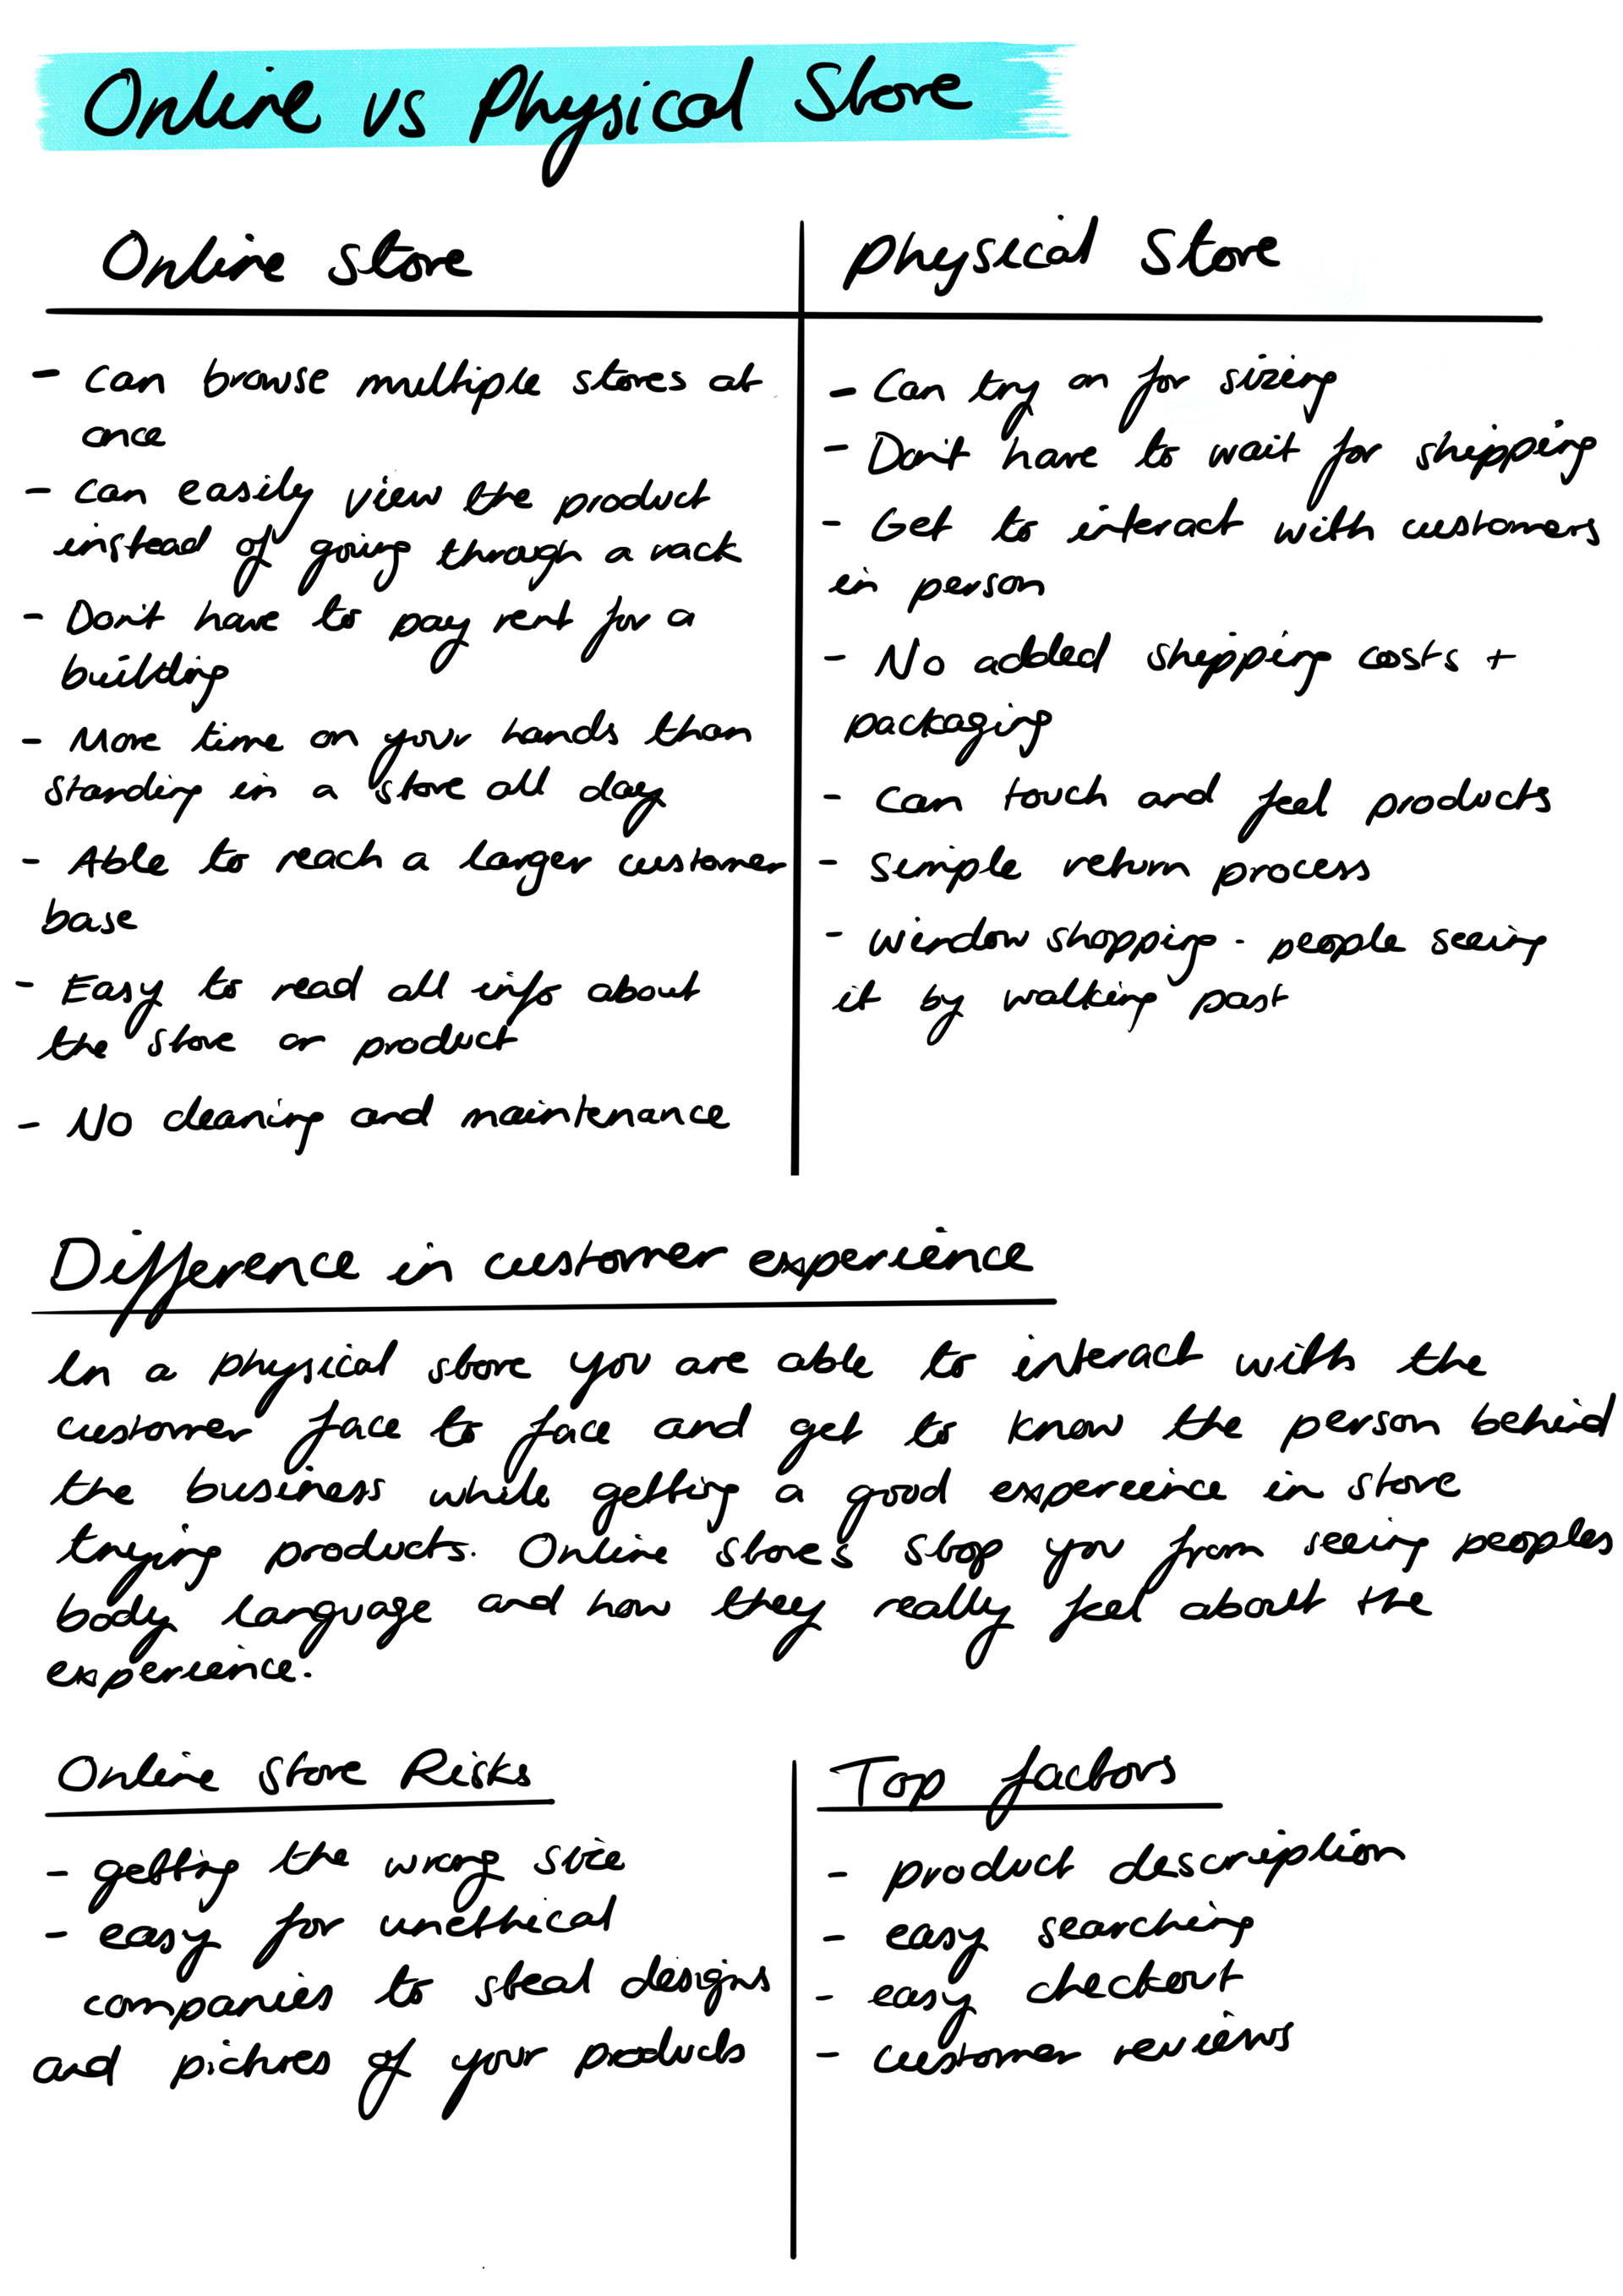 Online vs Physical Store
Online store
- can browse multiple stores at
once
- can easily view the product
instead of going through a rack
- Don't have to pay rent for a
building
- More time on your hands than
standing in a store all day
- Able to reach a larger customer
base
- Easy to read all info about
the store or product
- No cleaning and maintenance
Physical Store
- Can try on for sizing
- Don't have to wait for shipping
- Get to interact with customers
in person
- No added shipping costs +
packaging
- can touch and feel products
- simple return process
- window shopping - people seeing
it by walking past
Difference in customer experience
In a physical store you are able to interact with the
customer face to face and get to know the person behind
the business while getting a good experience in store
trying products. Online stores stop you from seeing peoples
body language and how they really feel about the
experience.
Online Store Risks
- getting the wrong size
- easy for unethical
companies to steal designs
and pictures of your products
Top factors
- product description
- easy searching
- easy checkout
- customer reviews